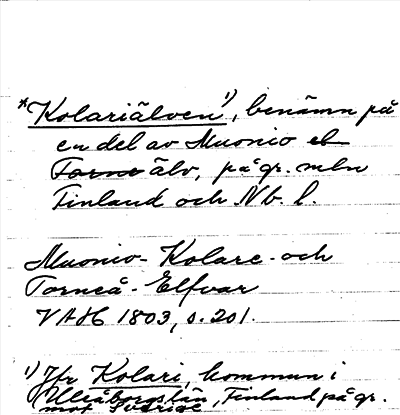 *Kolariälven¹⁾, benämn på
en del av Muonio el
Torne älv, på gr. mln
Finland och Nb. l.
Muonio- Kolare- och
Torneå- Elfvar
VAH 1803, s. 201.
¹⁾ Jfr Kolari, kommun i
Uleåborgs län, Finland på gr.
mot Sverige